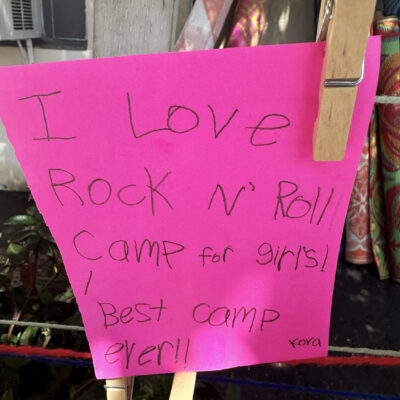 I Love
Rock N' Roll
Camp for girl's!
!
Best camp
ever!!
Kora